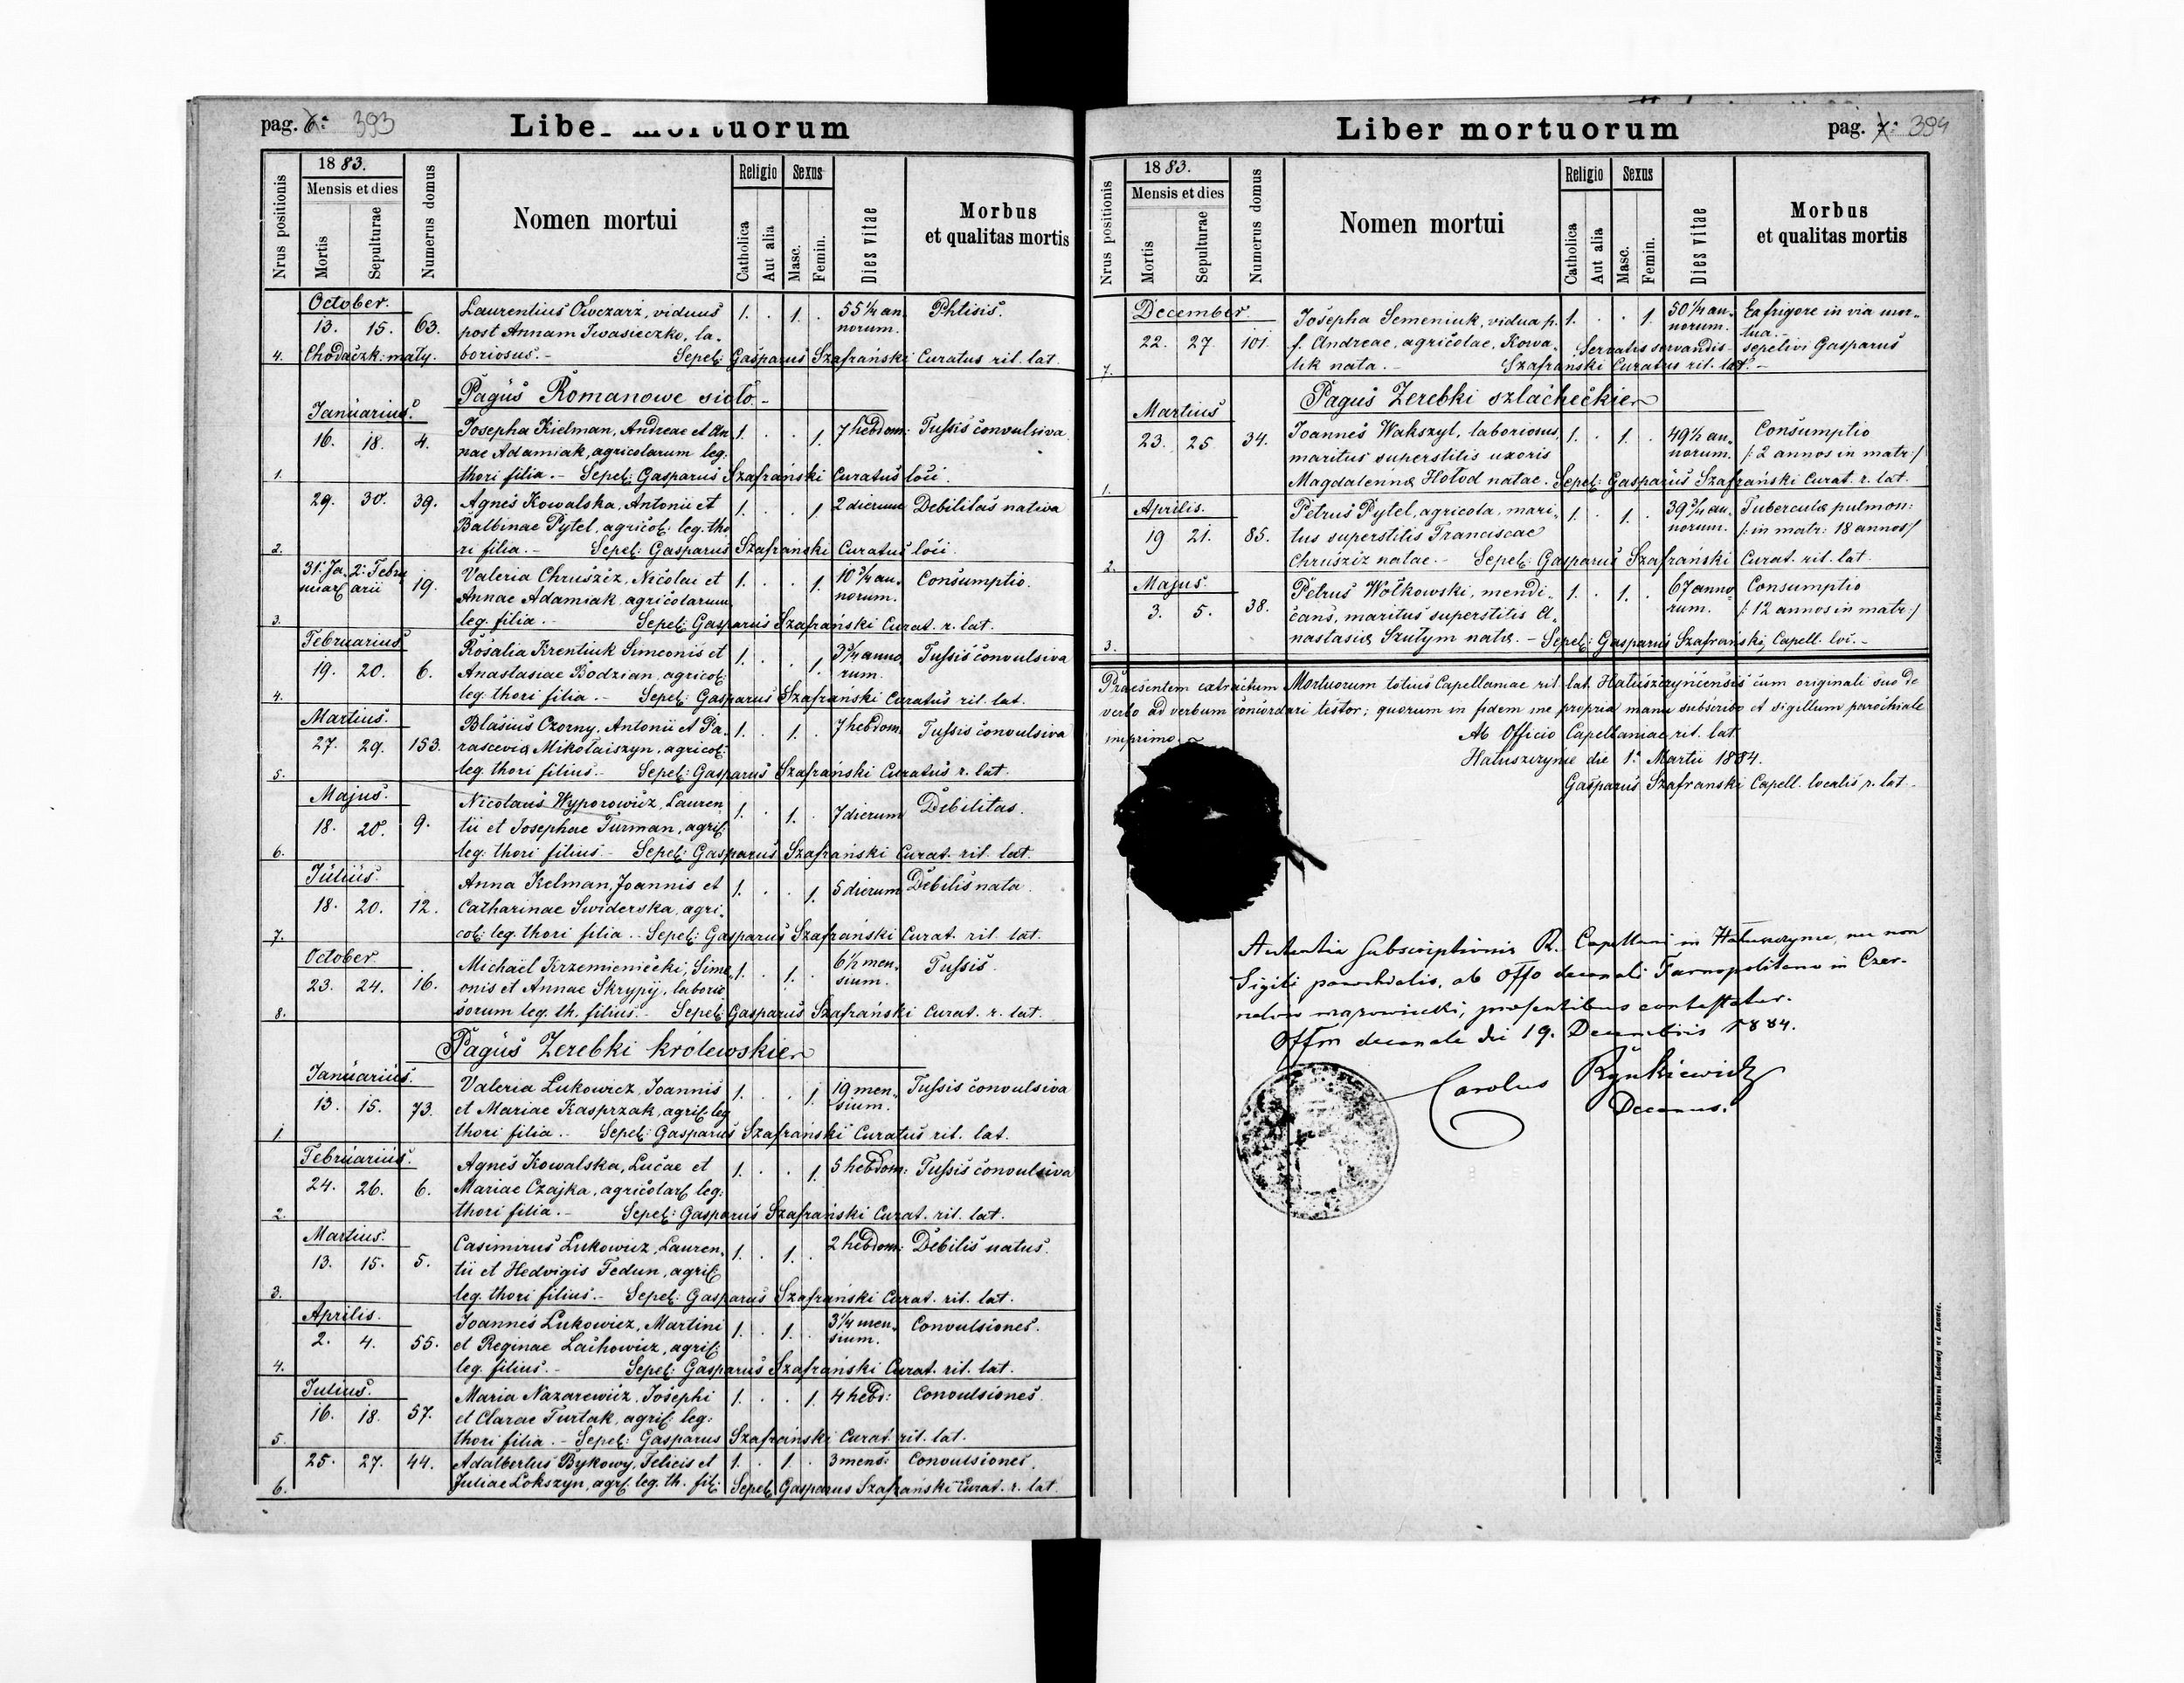 pag. 6. 393
Liber mortuorum
Nrus positionis
1883.
Mensis et dies
Mortis
Sepulturae
Numerus domus
Nomen mortui
Religio
Catholica
Aut alia
Sexus
Masc.
Femin.
Dies vitae
Morbus
et qualitas mortis
October.
Laurentius Owczarz, viduus 1. . 1. . 55 1/4 an- Phtisis.
13. 15. 63. post Annam Iwasieczko, la- norum.
4. Chodaczk: mały. boriosus. - Sepel: Gasparus Szafrański Curatus rit. lat.
Pagus Romanowe sioło. -
Januarius.
16. 18. 4. Josepha Kielman, Andreae et An- 1. . . 1. 7 hebdom: Tussis convulsiva
nae Adamiak, agricolarum leg.
1. thori filia. - Sepel: Gasparus Szafrański Curatus loci.
29. 30. 39. Agnes Kowalska, Antonii et 1. . . 1. 2 dierum Debilitas nativa
Balbinae Pytel, agricol: leg. tho
2. ri filia. - Sepel: Gasparus Szafrański Curatus loci.
31: Ja- 2: Febru Valeria Chruściz, Nicolai et 1. . . 1. 10 3/4 an- Consumptio.
nuar: arii 19. Annae Adamiak, agricolarum norum.
3. leg. filia. - Sepel: Gasparus Szafrański Curat. r. lat.
Februarius
19. 20. 6. Rosalia Krentiuk Simeonis et 1. . . 1. 3 3/4 anno Tussis convulsiva
Anastasiae Bodzian, agricol: rum.
4. leg. thori filia. - Sepel: Gasparus Szafrański Curatus rit. lat.
Martius.
27. 29. 153. Blasius Czorny, Antonii et Pa- 1. . 1. . 7 hebdom. Tussis convulsiva
rascevia Mikołaiszyn, agricol:
5. leg. thori filius. - Sepel: Gasparus Szafrański Curatus r. lat.
Majus.
18. 20. 9. Nicolaus Wyporowicz, Lauren 1. . 1. . 7 dierum Debilitas.
tii et Josephae Turman, agric:
6. leg: thori filius. - Sepel: Gasparus Szafrański Curat. rit. lat.
Julius.
18. 20. 12. Anna Kelman, Joannis et 1. . . 1. 5 dierum Debilis nata.
Catharinae Swiderska, agri-
7. col: leg. thori filia. - Sepel: Gasparus Szafrański Curat. rit. lat.
October
23. 24. 16. Michael Krzemieniecki, Sime 1. . 1. . 6 1/2 men- Tussis.
onis et Annae Skrypij, laborio sium.
8. sorum leg. th. filius. - Sepel: Gasparus Szafrański Curat. r. lat.
Pagus Zerebki królewskie
Januarius.
13. 15. 73. Valeria Lukowicz, Joannis 1. . . 1. 19 men- Tussis convulsiva
et Mariae Kasprzak, agric: leg sium.
1. thori filia. - Sepel: Gasparus Szafrański Curatus rit. lat.
Februarius.
24. 26. 6. Agnes Kowalska, Lucae et 1. . . 1. 5 hebdom: Tussis convulsiva
Mariae Czajka, agricolar: leg:
2. thori filia. - Sepel: Gasparus Szafrański Curat. rit. lat.
Martius.
13. 15. 5. Casimirus Lukowicz, Lauren- 1. . 1. . 2 hebdom: Debilis natus.
tii et Hedvigis Fedun, agric:
3. leg. thori filius. - Sepel: Gasparus Szafrański Curat. rit. lat.
Aprilis.
2. 4. 55. Joannes Lukowicz, Martini 1. . 1. . 3 1/4 men- Convulsiones.
et Reginae Lachowicz, agric: sium.
4. leg. filius. - Sepel: Gasparus Szafrański Curat. rit. lat.
Julius.
16. 18. 57. Maria Nazarewicz, Josephi 1. . . 1. 4 hebd: Convulsiones.
et Clarae Furtak, agric: leg:
5. thori filia. - Sepel: Gasparus Szafrański Curat. rit. lat.
25. 27. 44. Adalbertus Bykowy, Felicis et 1. . 1. . 3 mens: Convulsiones.
6. Juliae Lokszyn, agr: leg. th. fil: Sepel: Gasparus Szafrański Curat. r. lat.
Liber mortuorum
pag. 7. 394
Nrus positionis
1883.
Mensis et dies
Mortis
Sepulturae
Numerus domus
Nomen mortui
Religio
Catholica
Aut alia
Sexus
Masc.
Femin.
Dies vitae
Morbus
et qualitas mortis
December.
22. 27. 101. Josepha Semeniuk, vidua p. 1. . . 1. 50 1/4 an- Ea frigore in via mor-
f. Andreae, agricolae, Kowa- norum. tua. -
7. lik nata. - Servatis servandis sepelivi Gasparus
Szafranski Curatus rit. lat. -
Pagus Zerebki szlacheckie
Martius
23. 25 34. Joannes Wakszyl, laboriosus, 1. . 1. . 49 1/2 an- Consumptio
maritus superstitis uxoris norum. /: 2 annos in matr:/
1. Magdalenna Hołod natae. Sepel: Gasparus Szafrański Curat. r. lat.
Aprilis.
19 21. 85. Petrus Pytel, agricola, mari- 1. . 1. . 39 3/4 an- Tubercula pulmon:
tus superstitis Franciscae norum. /: in matr: 18 annos/
2. Chruściz natae. - Sepel: Gasparus Szafrański Curat. rit. lat.
Majus.
3. 5. 38. Petrus Wołkowski, mendi- 1. . 1. . 67 anno- Consumptio
cans, maritus superstitis A- rum. /: 12 annos in matr:/
3. nastasia Szułym nata. - Sepel: Gasparus Szafrański, Capell. loc. -
Praesentem extractum Mortuorum totius Capellaniae rit. lat. Hałuszczyńcensis cum originali suo de
verbo ad verbum concordari testor; quorum in fidem me propria manu subscribo et sigillum parochiale
imprimo.
Ab Officio Capellaniae rit. lat.
Hałuszczyńce die 1. Martii 1884.
Gasparus Szafranski Capell. localis r. lat.
Autentia subscriptionis R. Capellani in Hałuszczynce, nec non
Sigili parochialis, ab Offo decanali Tarnopolitano in Czer-
nelow mazowiecki, praesentibus contestatur.
Offm decanale die 19. Decembris 1884.
Carolus Rynkiewicz
Decanus.
Nakładem Drukarni Ludowej we Lwowie.